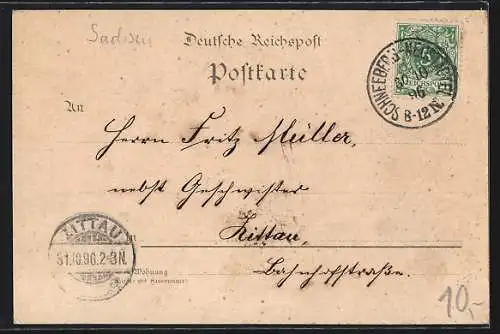 Sachsen
Deutsche Reichspost
Postkarte
An
Herrn Fritz Müller,
nebst Geschwister
in Zittau,
Bahnhofstraße.
Wohnung
(Straße und Hausnummer)
SCHNEEBERG-NEUSTÄDTEL
30.10
96
8-12 N.
ZITTAU
31.10.96.2-3N.
10,-